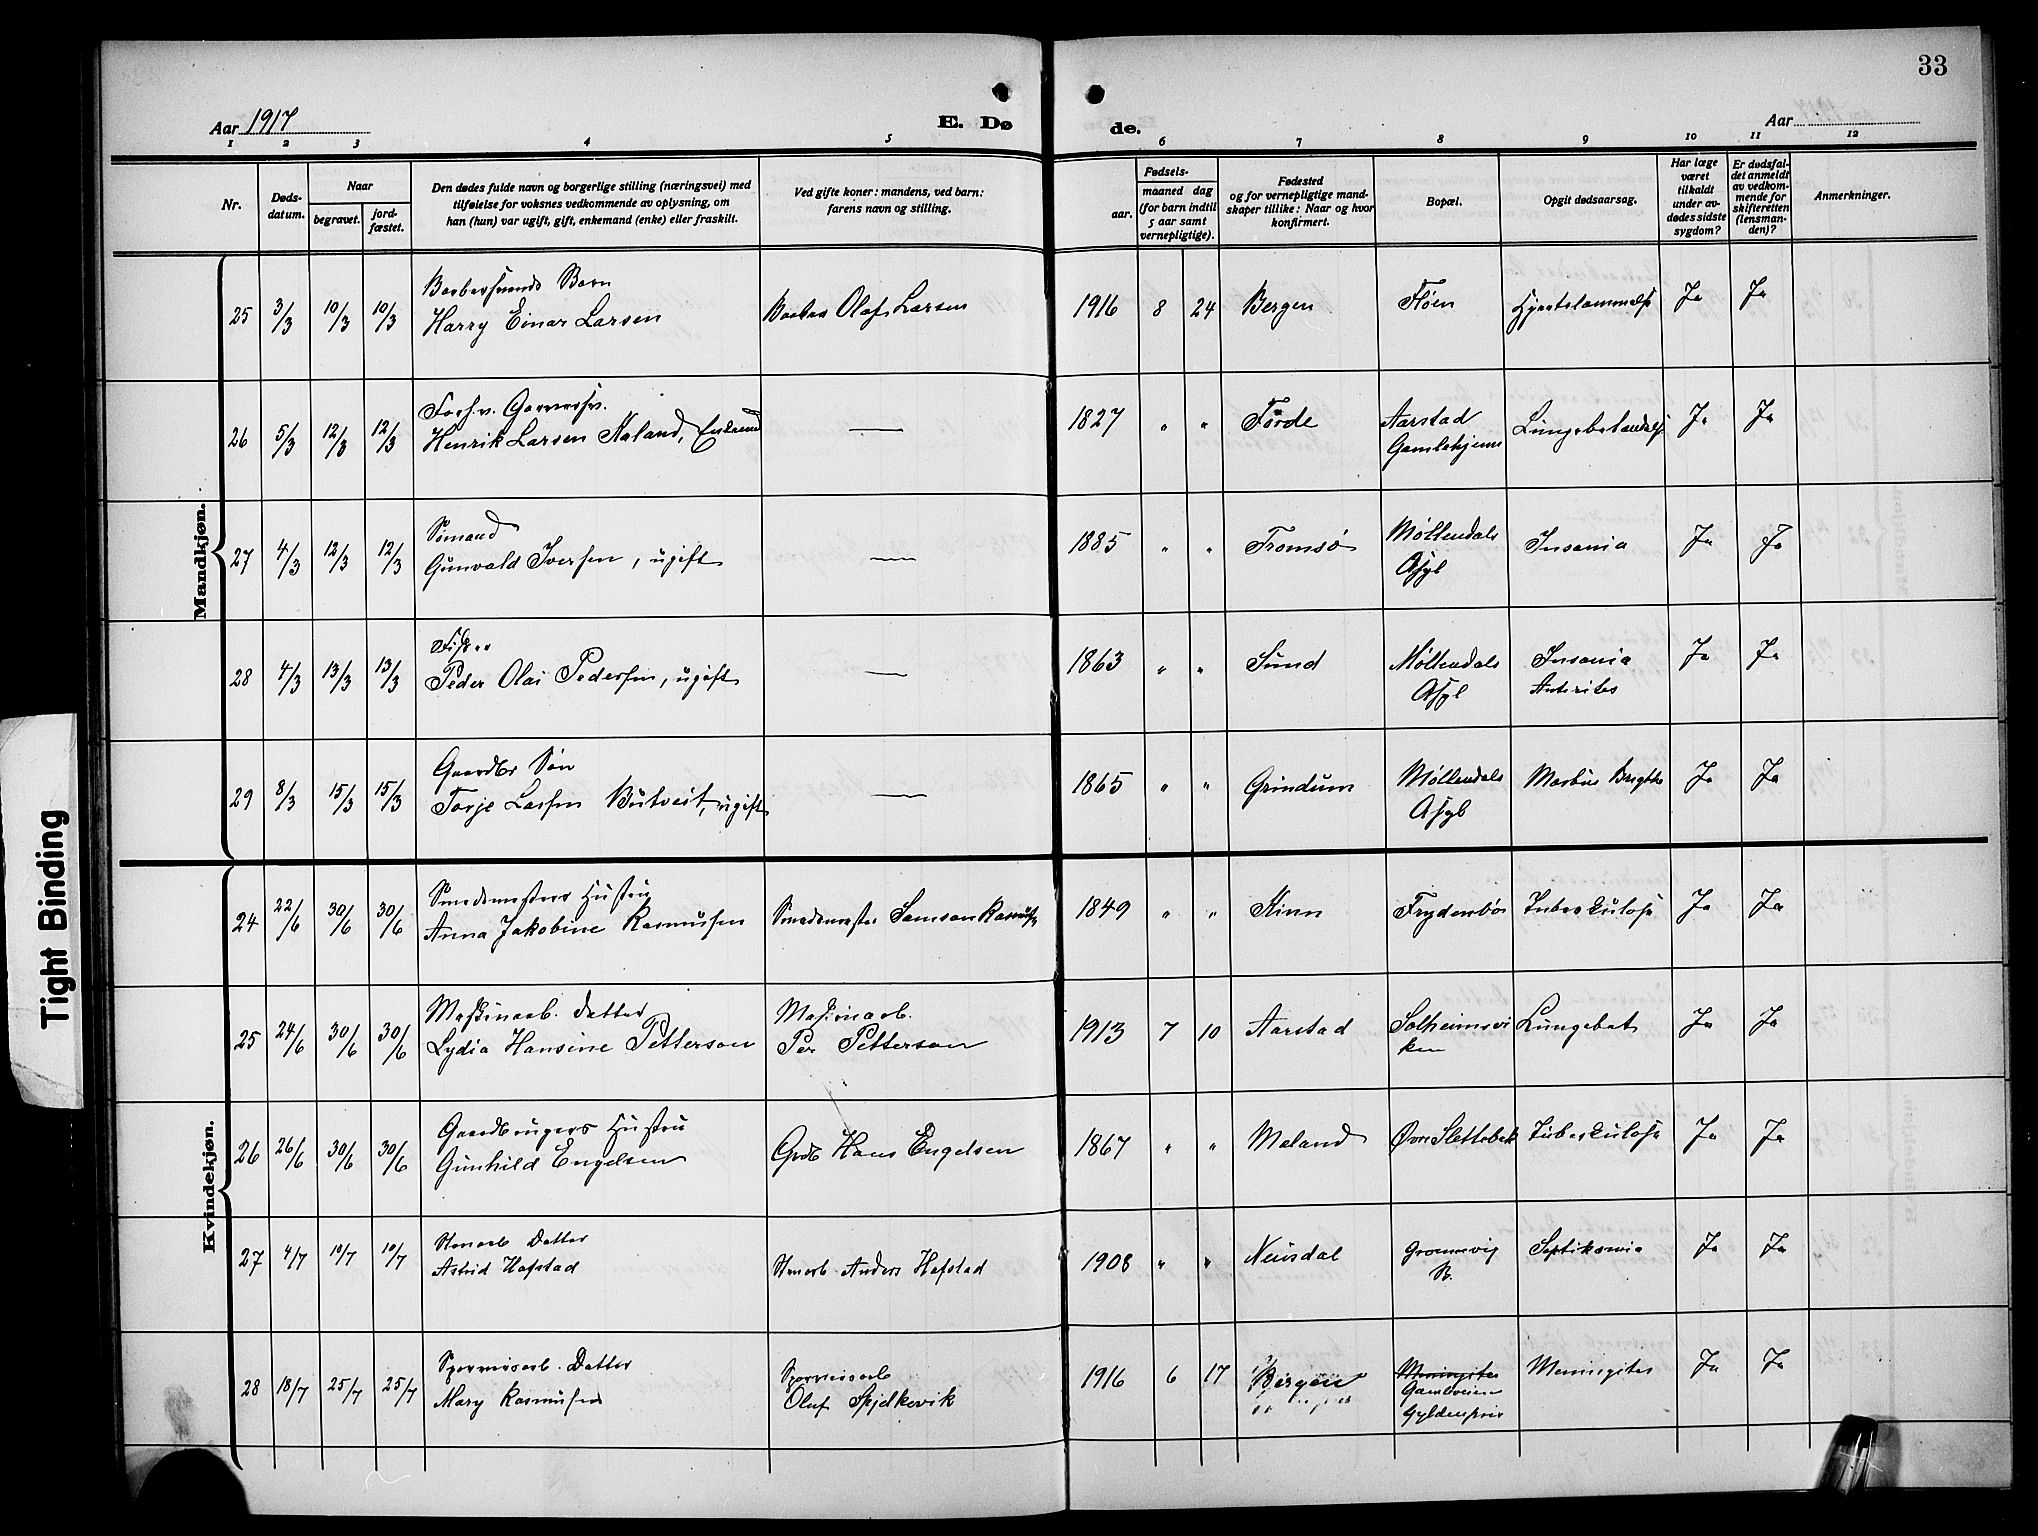 33
Aar 1917
E. Dø
de.
Aar
1 2 3 4 5 6 7 8 9 10 11 12
Nr.
Døds-
datum.
Naar
begravet.
jord-
fæstet.
Den dødes fulde navn og borgerlige stilling (næringsvei) med
tilføielse for voksnes vedkommende av oplysning, om
han (hun) var ugift, gift, enkemand (enke) eller fraskilt.
Ved gifte koner: mandens, ved barn:
farens navn og stilling.
Fødsels-
aar.
maaned dag
(for barn indtil
5 aar samt
vernepligtige).
Fødested
og for vernepligtige mand-
skaper tillike: Naar og hvor
konfirmert.
Bopæl.
Opgit dødsaarsag.
Har læge
været
tilkaldt
under av-
dødes sidste
sygdom?
Er dødsfal-
det anmeldt
av vedkom-
mende for
skifteretten
(lensman-
den)?
Anmerkninger.
Mandkjøn.
Barbersvends Barn
25 3/3 10/3 10/3 Harry Einar Larsen Olaf Larsen 1916 8 24 Bergen Fløen Ja Ja
Forh.v. Garversv.
26 5/3 12/3 12/3 Henrik Larsen Naland, Enkem — 1827 " " Førde Aarstad
Gamlehjem Ja Ja
Sømand
27 4/3 12/3 12/3 Gunvald Iversen, ugift — 1885 " " Tromsø Møllendals
Asyl Insania Ja Ja
Fisker
28 4/3 13/3 13/3 Peder Olai Pedersen, ugift — 1863 " " Sund Møllendals
Asyl Insania Ja Ja
Gaardbr Søn
29 8/3 15/3 15/3 Torje Larsen ugift — 1865 " " Grindum Møllendals
Asyl Morbus Brigthi Ja Ja
Kvindekjøn.
Smedemesters Hustru
24 22/6 30/6 30/6 Anna Jakobine Rasmusen Smedemester Samson Rasmusen 1849 " " Kinn Frydenbø Tuberkulose Ja Ja
Maskinarb. Datter
25 24/6 30/6 30/6 Lydia Hansine Petterson Maskinarb.
Per Petterson 1913 7 10 Aarstad Solheimsvi
ken Lungebet Ja Ja
Gaardbrugers Hustru
26 26/6 30/6 30/6 Gunhild Engelsen Grdb Hans Engelsen 1867 " " Meland Øvre Slettebak Tuberkulose Ja Ja
Stenarb Datter
27 4/7 10/7 10/7 Astrid Hafstad Stenarb Anders Hafstad 1908 " " Neusdal Septikæmia Ja Ja
Sporveisarb. Datter
28 18/7 25/7 25/7 Mary Rasmusen Sporveisarb
Oluf Spjelkevik 1916 6 17 Bergen Meningites
Gamleveien
Gyldenpris Meningites Ja Ja
Tight Binding